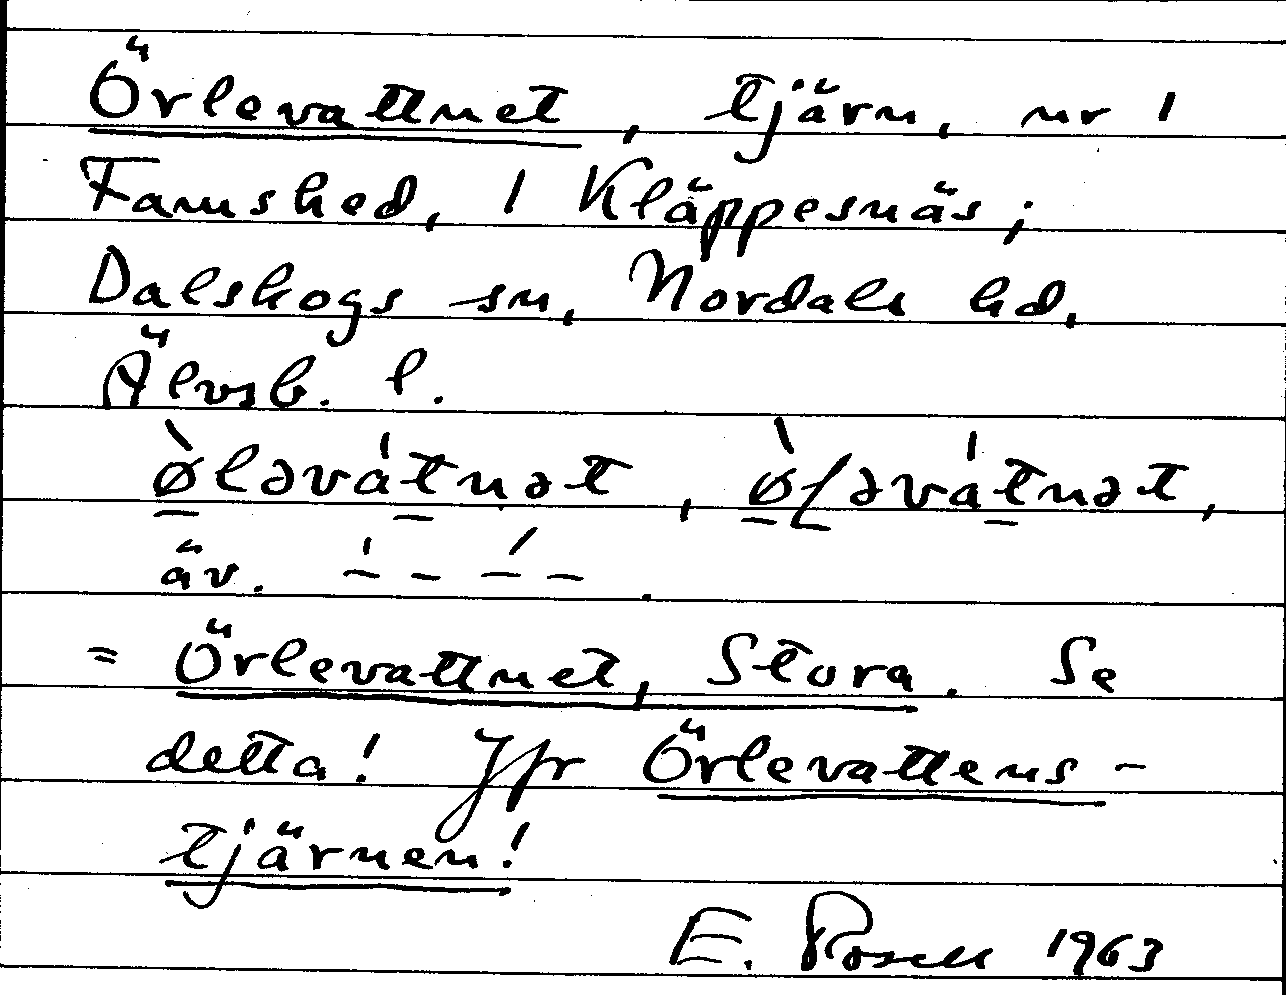 Örlevattnet, tjärn, nr 1
Famshed, 1 Kläppesnäs;
Dalskogs sn, Nordals hd,
Älvsb. l.
ø̱̀ləvát̲nət, ø̱̀ɭəvát̲nət,
äv. –́ – –́ – .
= Örlevattnet, Stora. Se
detta! Jfr Örlevattens-
tjärnen!
E. Rosell 1963